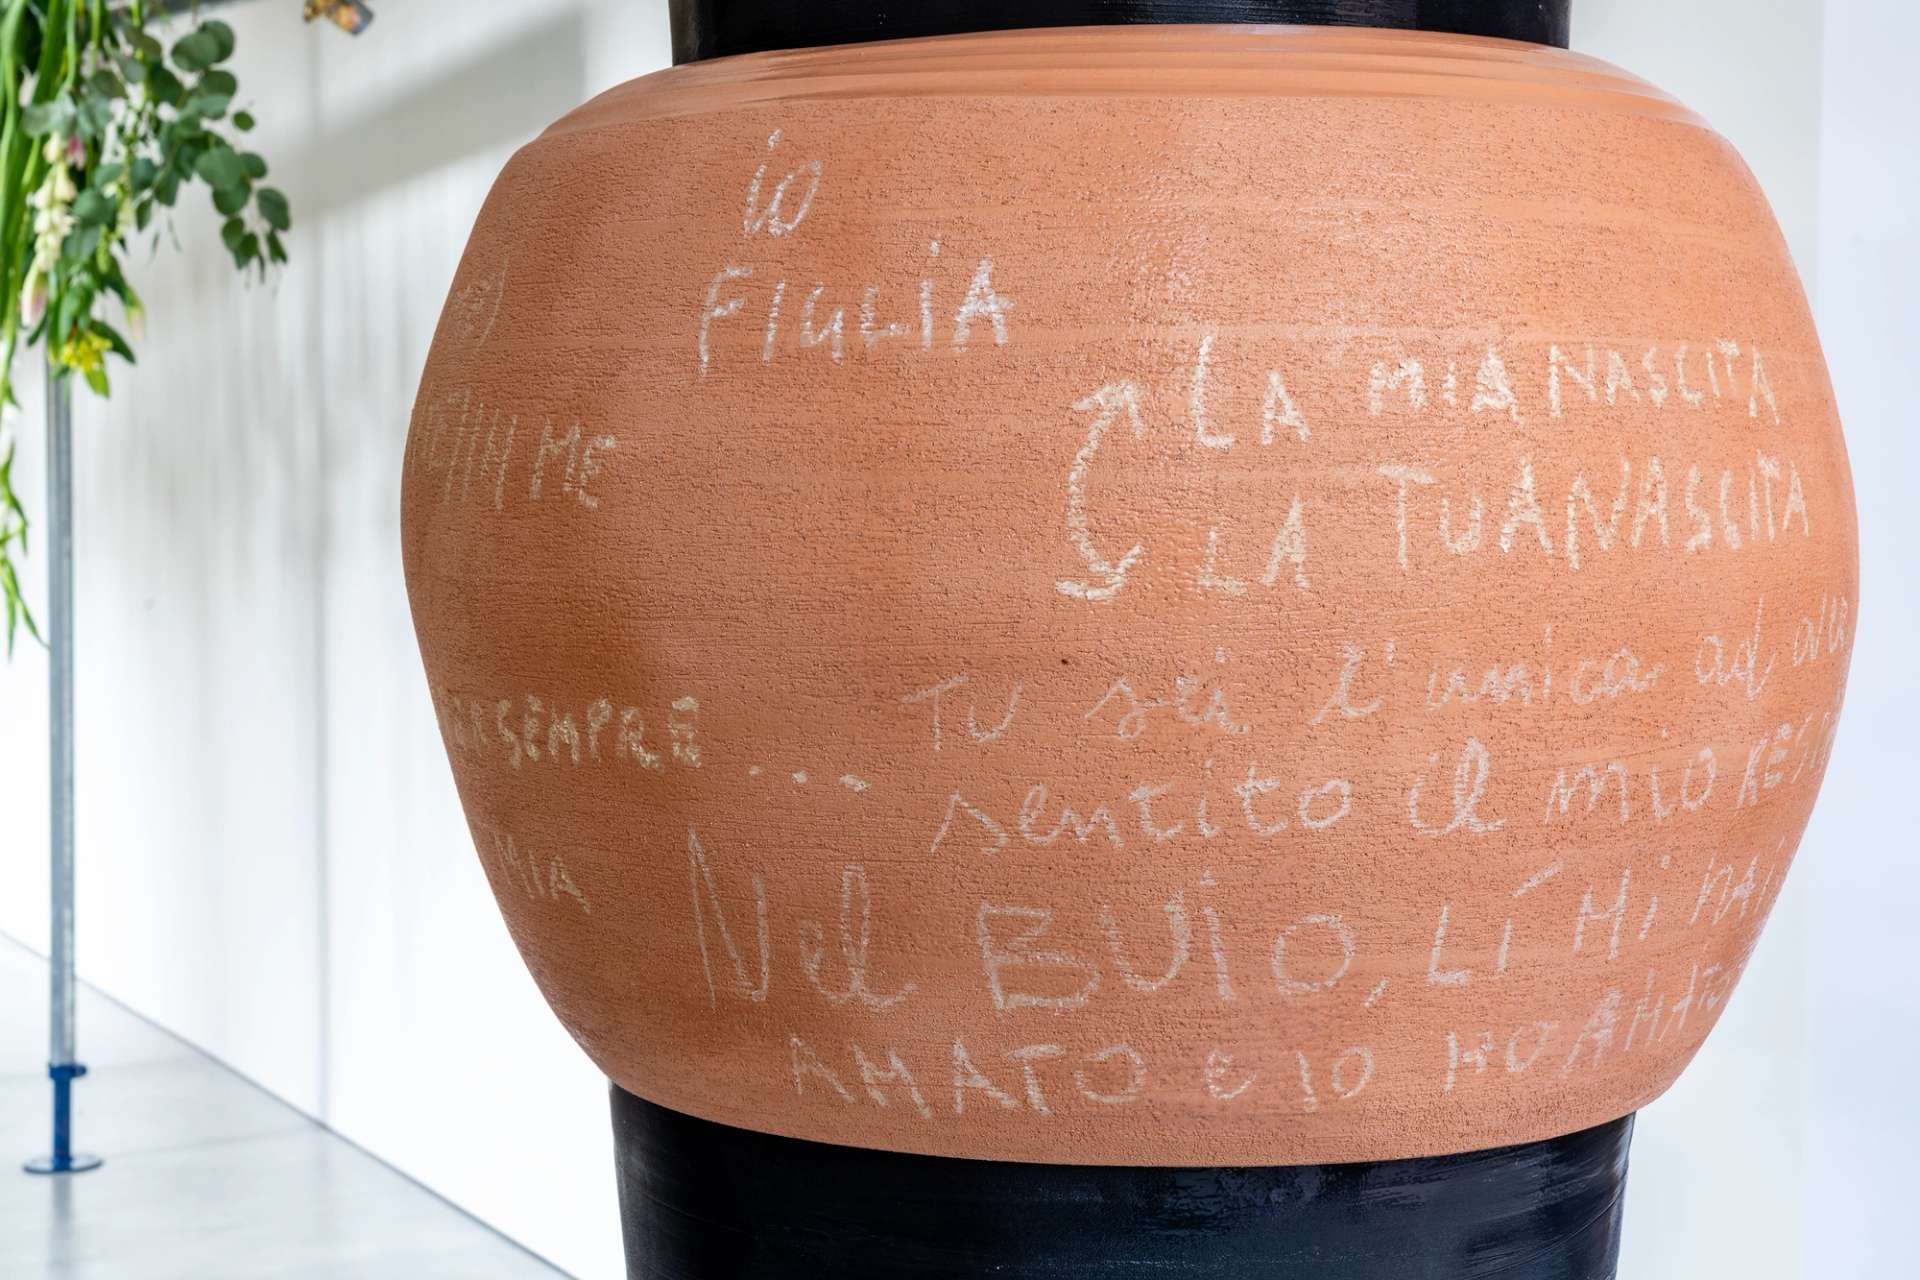 io
FIGLIA
LA MIA NASCITA
LA TUA NASCITA
ME
SEMPRE ....
TU sei l'unica ad
sentito il mio
MIA
Nel BUIO, LÍ Mi
AMATO E IO HO AMATO